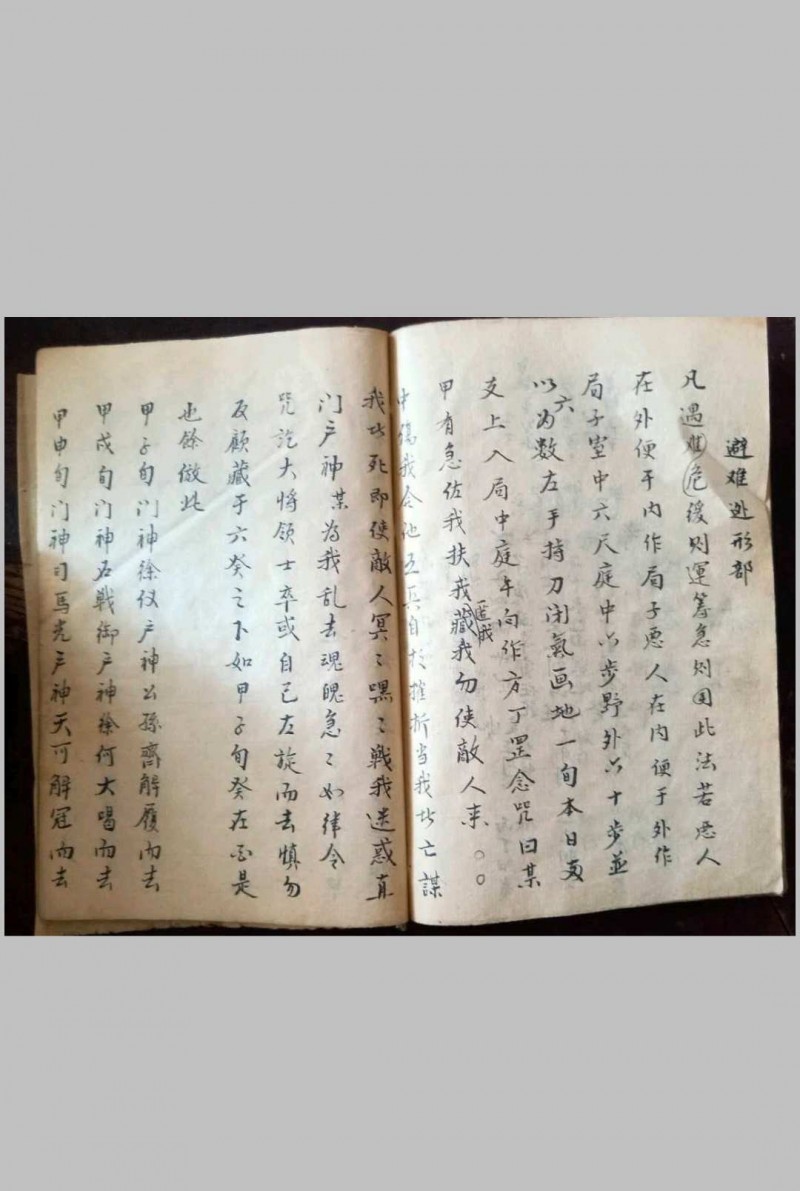 避难迯形部
凡遇难危缓则運筹急则用此法若恶人
在外便于内作局子恶人在内便于外作
局子室中六尺庭中六步野外六十步並
以六为数左手持刀闭氣画地一旬本日
支上入局中庭午向作方丁罡念咒曰某
甲有急佐我扶我藏我匿我勿使敵人来○○
中傷我令他自摧折当我此亡謀
我此死即使敵人冥〻嘿〻戰我迷惑直
门户神某为我乱去魂魄急〻如律令
咒讫大将领士卒或自己左旋而去慎勿
反顾藏于六癸之下如甲子旬癸在酉是
也餘倣此
甲子旬门神徐仪户神公孫齊解履而去
甲戌旬门神石戰御户神徐何大喝而去
甲申旬门神司馬光户神天可解冠而去